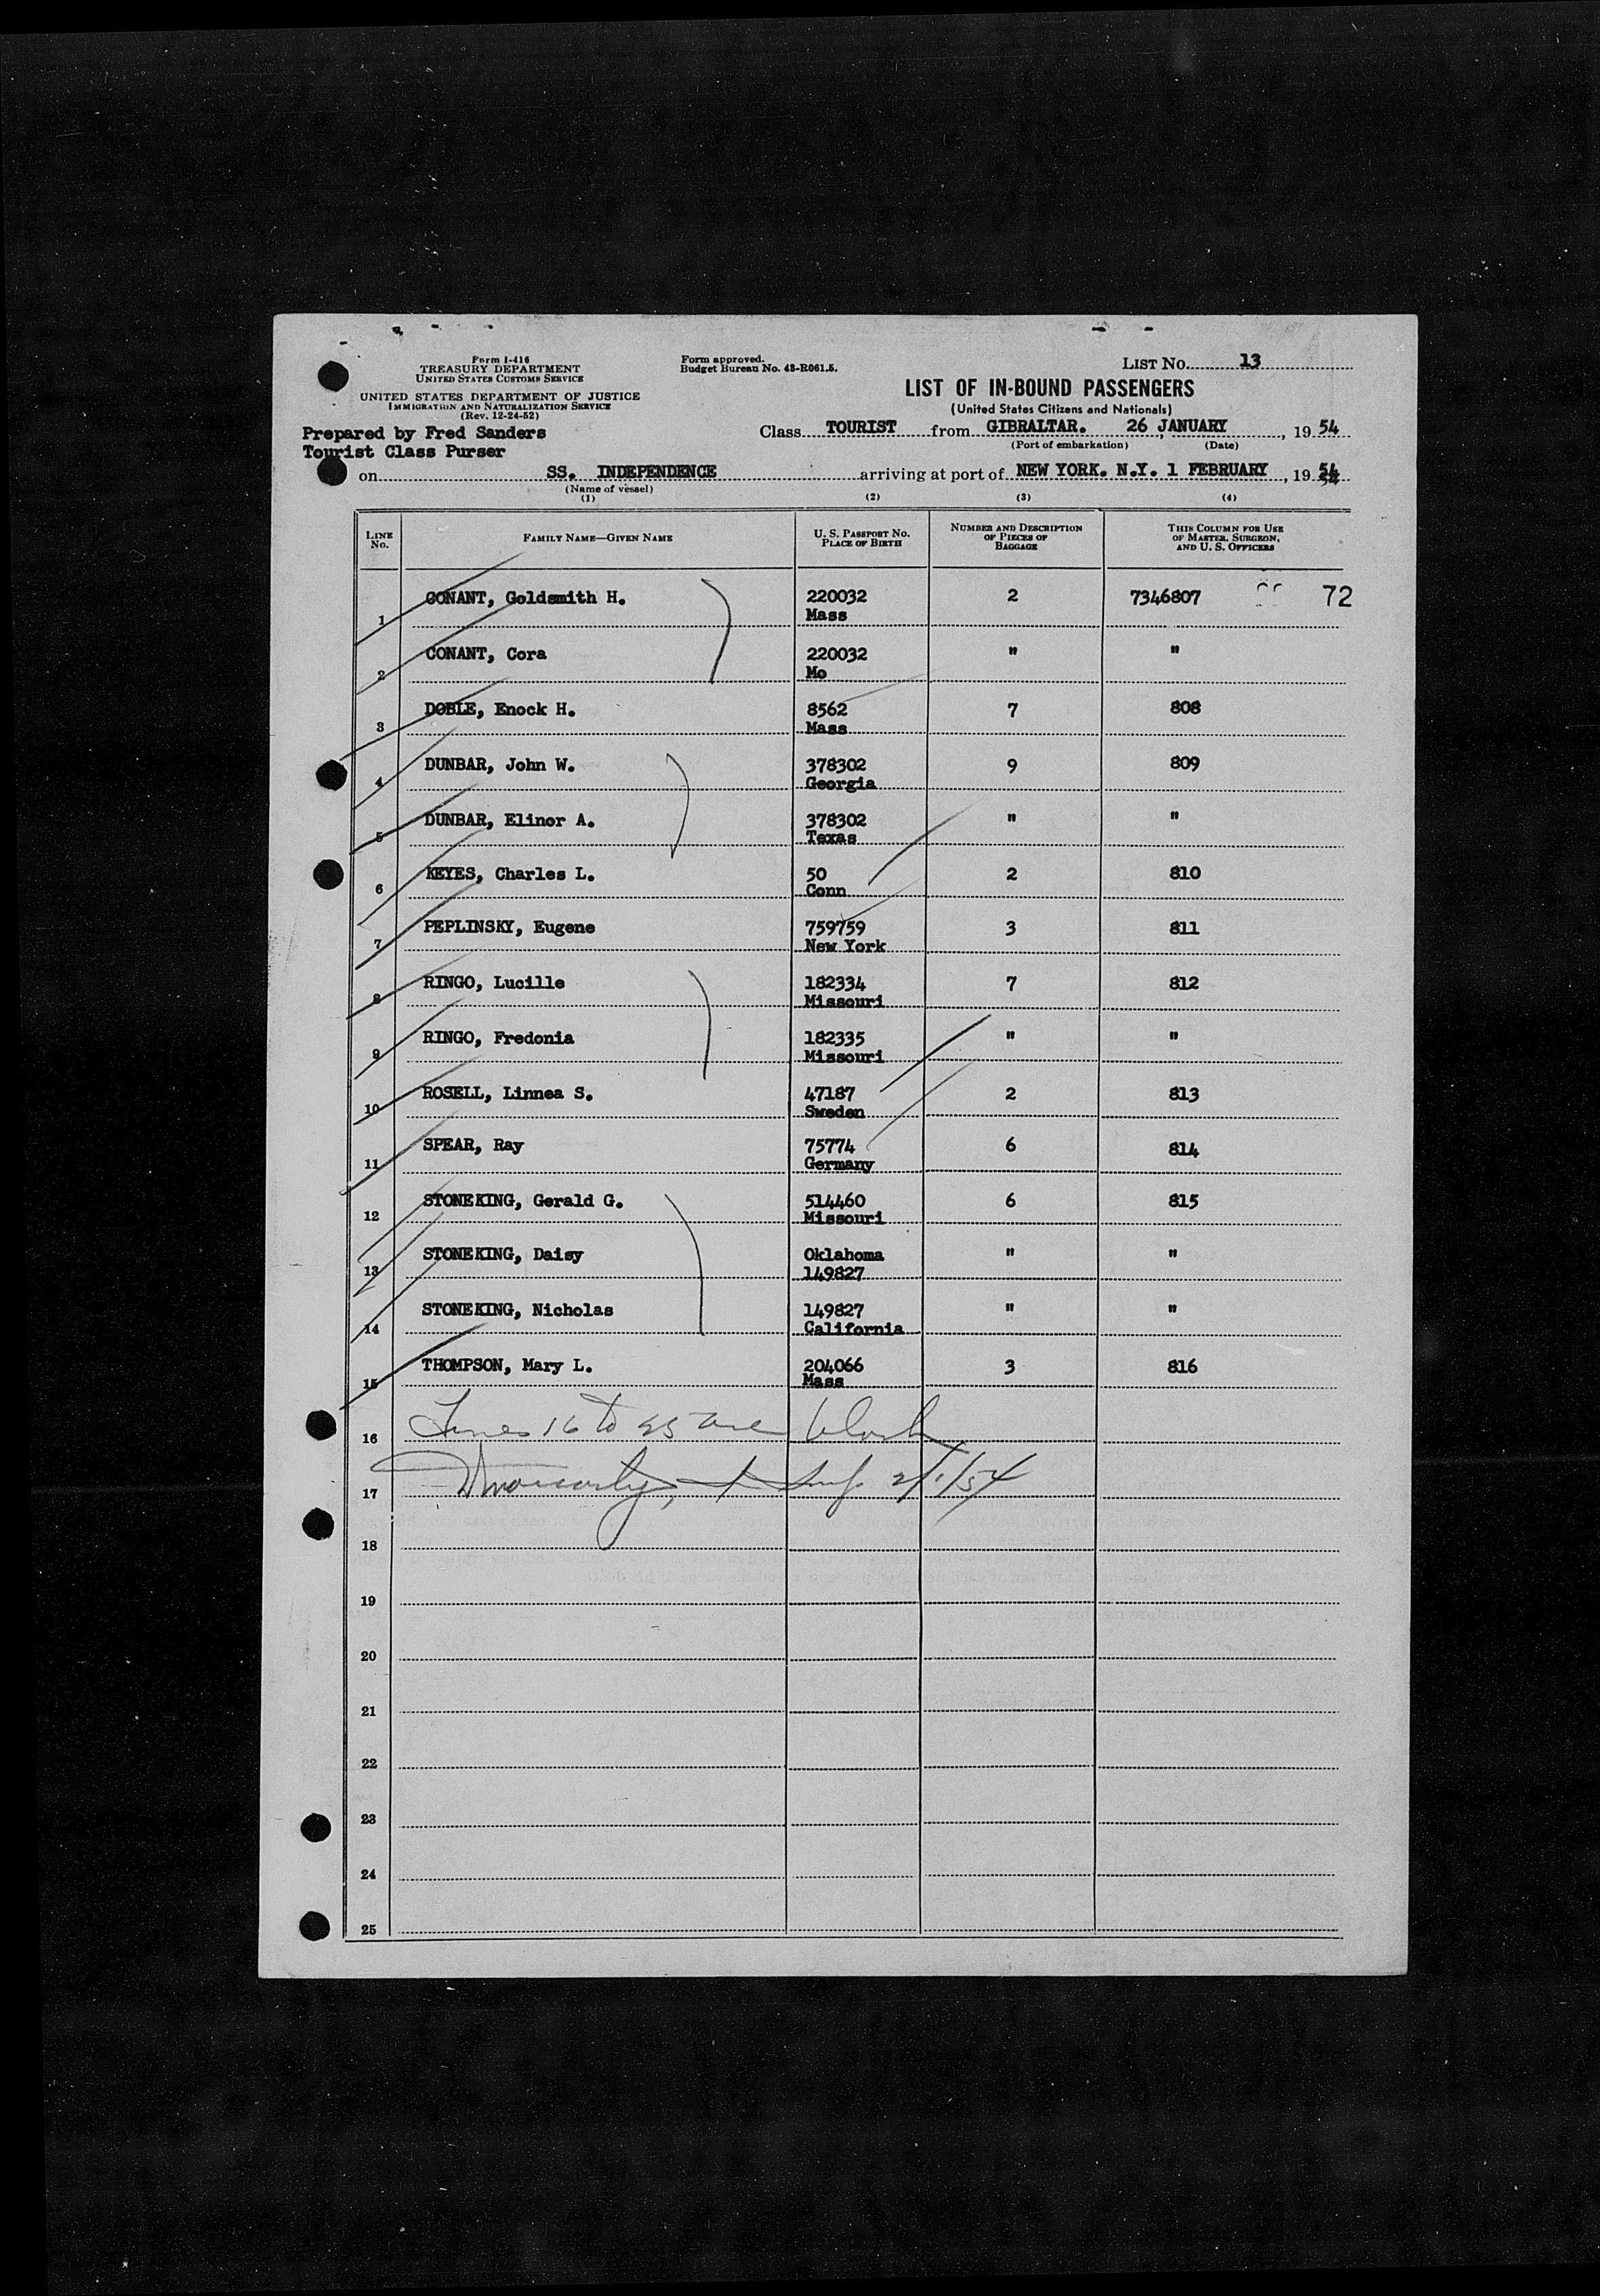 Form I-416
TREASURY DEPARTMENT
UNITED STATES CUSTOMS SERVICE
UNITED STATES DEPARTMENT OF JUSTICE
IMMIGRATION AND NATURALIZATION SERVICE
(Rev. 12-24-52)
Form approved.
Budget Bureau No. 43-R061.5.
LIST No. 13
LIST OF IN-BOUND PASSENGERS
(United States Citizens and Nationals)
Prepared by Fred Sanders
Tourist Class Purser
Class TOURIST from GIBRALTAR. 26 JANUARY, 19 54
(Port of embarkation) (Date)
on SS. INDEPENDENCE arriving at port of NEW YORK. N.Y. 1 FEBRUARY, 19 54
(Name of vessel)
(1) (2) (3) (4)
LINE No. FAMILY NAME—GIVEN NAME U. S. PASSPORT NO. PLACE OF BIRTH NUMBER AND DESCRIPTION OF PIECES OF BAGGAGE THIS COLUMN FOR USE OF MASTER, SURGEON, AND U. S. OFFICERS
1 CONANT, Goldsmith H. 220032 2 7346807 72
Mass
2 CONANT, Cora 220032 " "
Mo
3 DOBLE, Enock H. 8562 7 808
Mass
4 DUNBAR, John W. 378302 9 809
Georgia
5 DUNBAR, Elinor A. 378302 " "
Texas
6 KEYES, Charles L. 50 2 810
Conn
7 PEPLINSKY, Eugene 759759 3 811
New York
8 RINGO, Lucille 182334 7 812
Missouri
9 RINGO, Fredonia 182335 " "
Missouri
10 ROSELL, Linnea S. 47187 2 813
Sweden
11 SPEAR, Ray 75774 6 814
Germany
12 STONEKING, Gerald G. 514460 6 815
Missouri
13 STONEKING, Daisy Oklahoma " "
149827
14 STONEKING, Nicholas 149827 " "
California
15 THOMPSON, Mary L. 204066 3 816
Mass
16 Lines 16 to 25 are blank
17 2/1/54
18
19
20
21
22
23
24
25